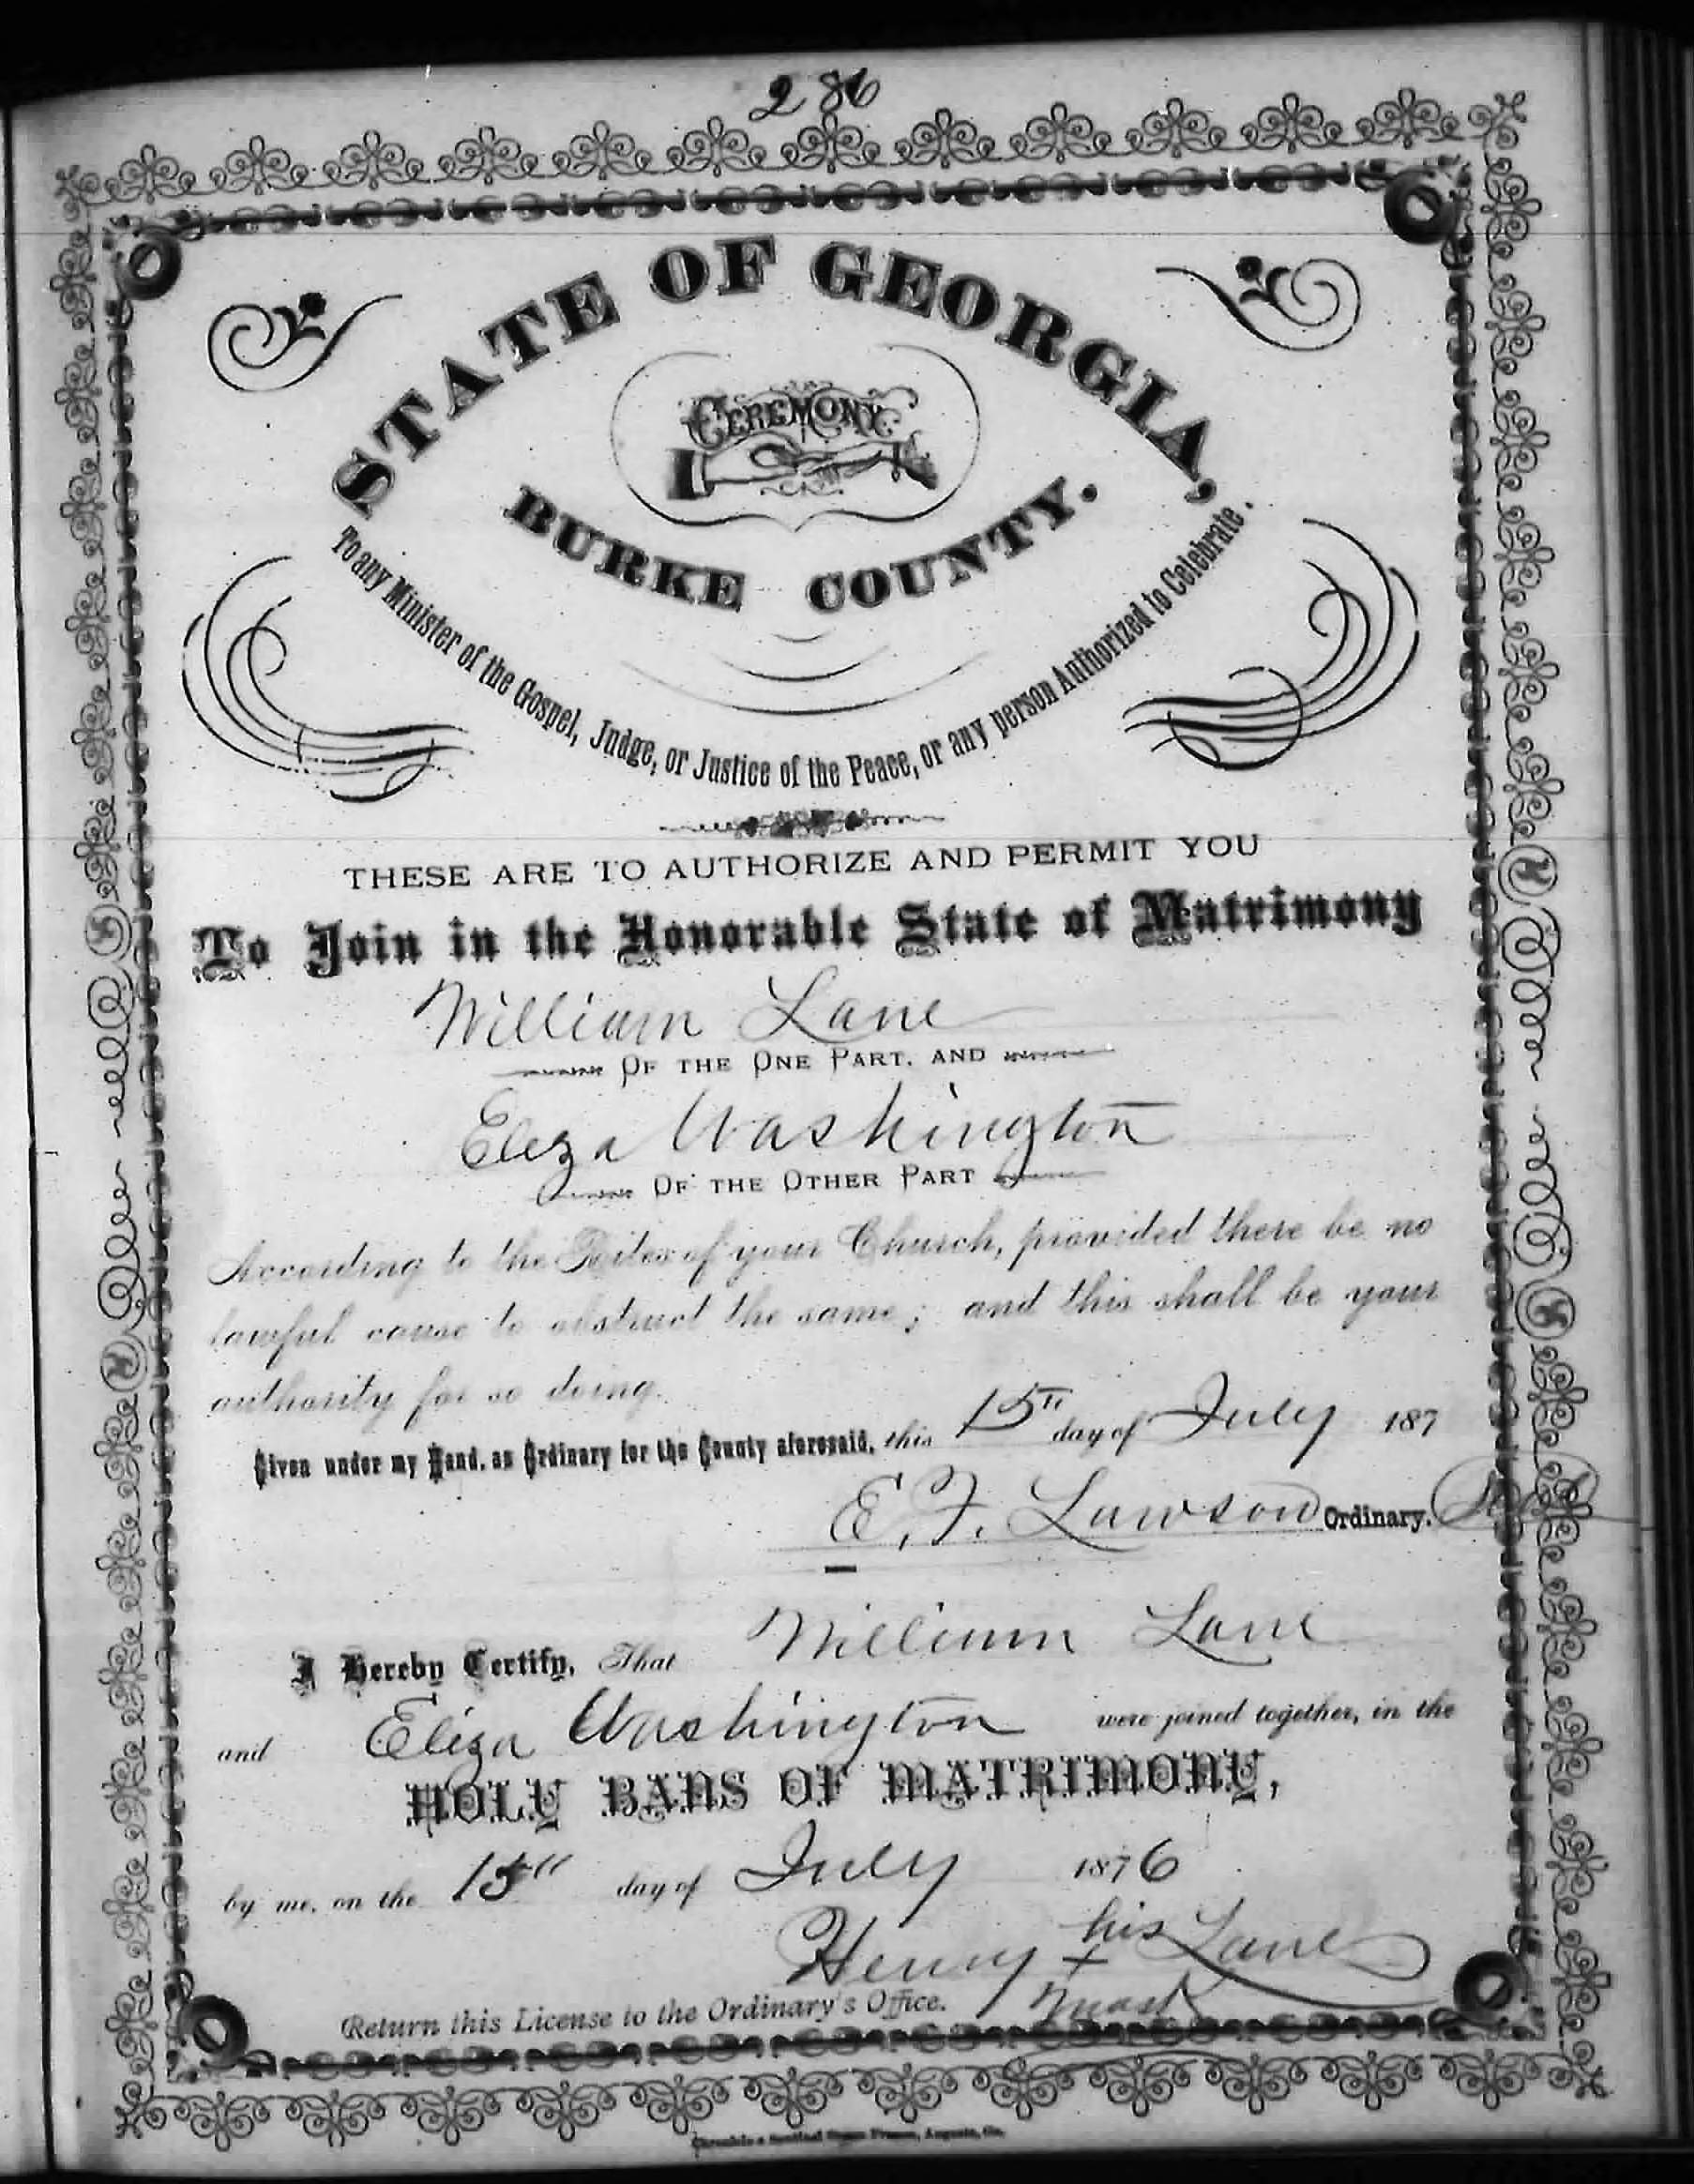 286
STATE OF GEORGIA,
CEREMONY
BURKE COUNTY.
To any Minister of the Gospel, Judge, or Justice of the Peace, or any person Authorized to Celebrate.
THESE ARE TO AUTHORIZE AND PERMIT YOU
To Join in the Honorable State of Matrimony
William Lane
OF THE ONE PART, AND
Eliza Washington
OF THE OTHER PART
According to the Rites of your Church, provided there be no
lawful cause to obstruct the same; and this shall be your
authority for so doing.
Given under my Hand, as Ordinary for the County aforesaid, this 15th day of July 187
E. F. Lawson Ordinary.
I Hereby Certify, That William Lane
and Eliza Washington were joined together, in the
HOLY BANS OF MATRIMONY,
by me, on the 15" day of July 1876
his
Henry + Lane
mark
Return this License to the Ordinary's Office.
Chronicle & Sentinel Steam Presses, Augusta, Ga.